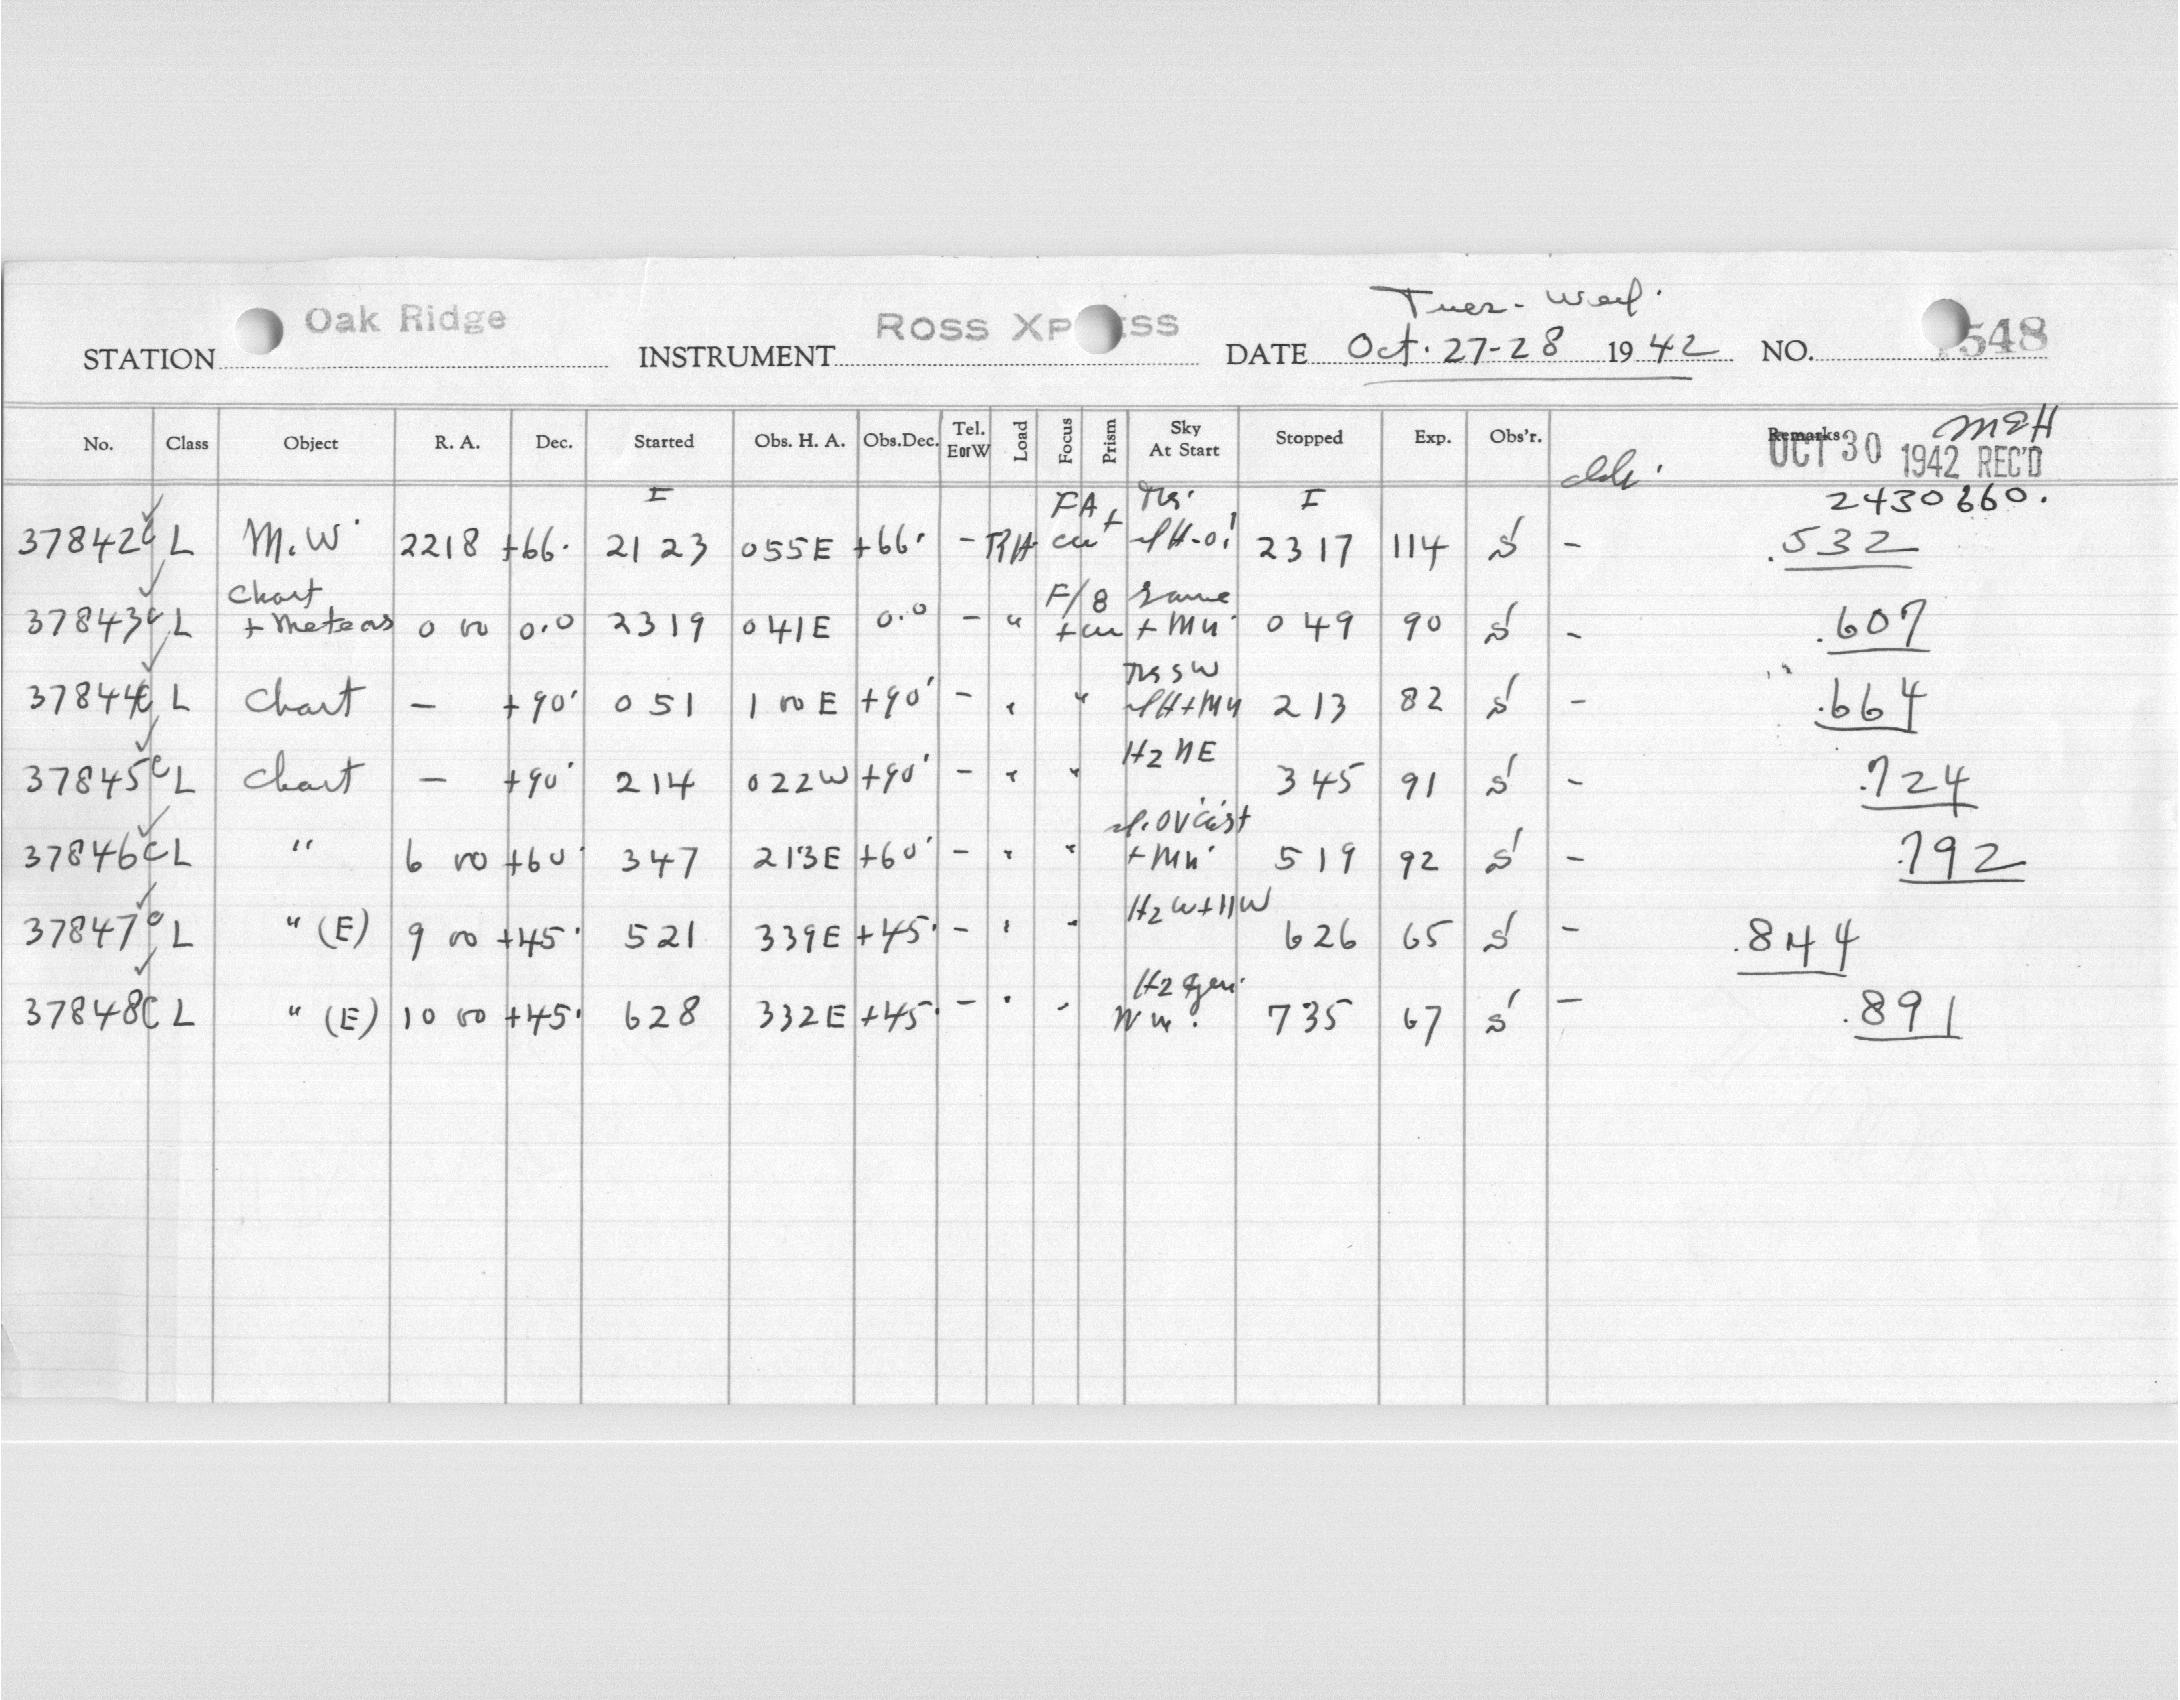 Tues - Wed.
STATION Oak Ridge INSTRUMENT ROSS XP SS DATE Oct. 27-28 1942 NO. 548
No. Class Object R. A. Dec. Started Obs. H. A. Obs.Dec. Tel. E or W Load Focus Prism Sky At Start Stopped Exp. Obs'r. Remarks
MEH
OCT 30 1942 REC'D
I FA + I 2430660.
37842 C L M.W. 2218 +66. 21 23 055E +66. - RH 23 17 114 S - .532
Chart F/8 Same
37843 C L + Meteors 0 00 0.0 23 19 041E 0.0 - " + Mn 0 49 90 S - .607
37844 C L Chart - +90 0 51 1 00 E +90 - " " H+Mn 2 13 82 S - .664
H2 NE
37845 C L Chart - +90 2 14 022W +90 - " " 3 45 91 S - .724
37846 C L " 6 00 +60 3 47 213E +60 - " " + Mn 5 19 92 S - .792
37847 C L " (E) 9 00 +45. 5 21 339E +45. - " " 6 26 65 S - .844
37848 C L " (E) 10 00 +45. 6 28 332E +45. - " " 7 35 67 S - .891